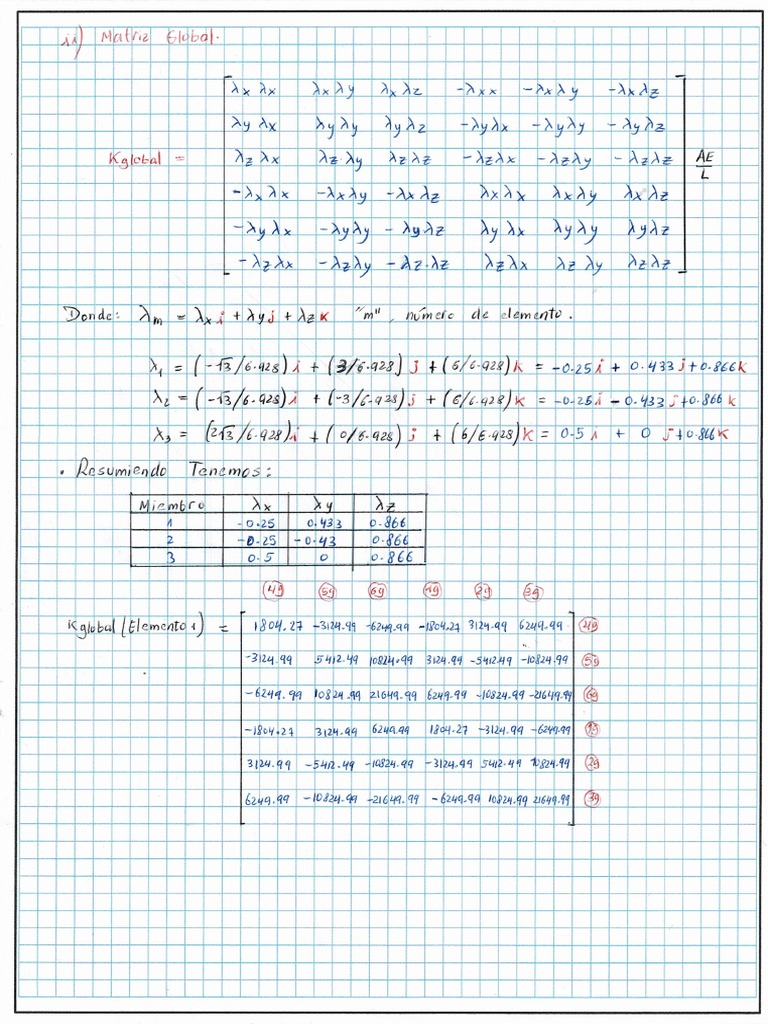 ii) Matriz Global.
λx λx λx λy λx λz -λx x -λx λy -λx λz
λy λx λy λy λy λz -λy λx -λy λy -λy λz
Kglobal = λz λx λz λy λz λz -λz λx -λz λy -λz λz AE/L
-λx λx -λx λy -λx λz λx λx λx λy λx λz
-λy λx -λy λy -λy λz λy λx λy λy λy λz
-λz λx -λz λy -λz.λz λz λx λz λy λz λz
Donde: λm = λx i + λy j + λz k "m", número de elemento.
λ1 = (-√3/6.928) i + (3/6.928) j + (6/6.928) k = -0.25 i + 0.433 j + 0.866 k
λ2 = (-√3/6.928) i + (-3/6.928) j + (6/6.928) k = -0.25 i - 0.433 j + 0.866 k
λ3 = (2√3/6.928) i + (0/6.928) j + (6/6.928) k = 0.5 i + 0 j + 0.866 k
• Resumiendo Tenemos:
Miembro λx λy λz
1 -0.25 0.433 0.866
2 -0.25 -0.43 0.866
3 0.5 0 0.866
4g 5g 6g 1g 2g 3g
Kglobal (Elemento 1) = 1804.27 -3124.99 -6249.99 -1804.27 3124.99 6249.99 4g
-3124.99 5412.49 10824.99 3124.99 -5412.49 -10824.99 5g
-6249.99 10824.99 21649.99 6249.99 -10824.99 -21649.99 6g
-1804.27 3124.99 6249.99 1804.27 -3124.99 -6249.99 1g
3124.99 -5412.49 -10824.99 -3124.99 5412.49 10824.99 2g
6249.99 -10824.99 -21649.99 -6249.99 10824.99 21649.99 3g